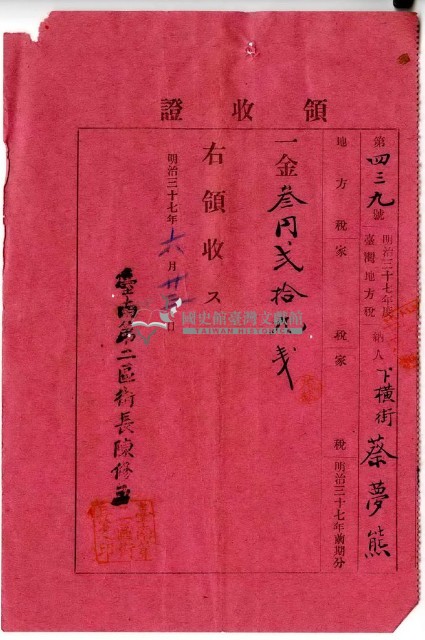 領收證
第四三九號
明治三十七年度
臺灣地方稅
納人 下橫街 蔡夢熊
地方稅家 稅家 稅 明治三十七年前期分
一金 叄円弍拾 戔
右領收ス
明治三十七年 六月 日
臺南第二區街長陳修五
國史館臺灣文獻館